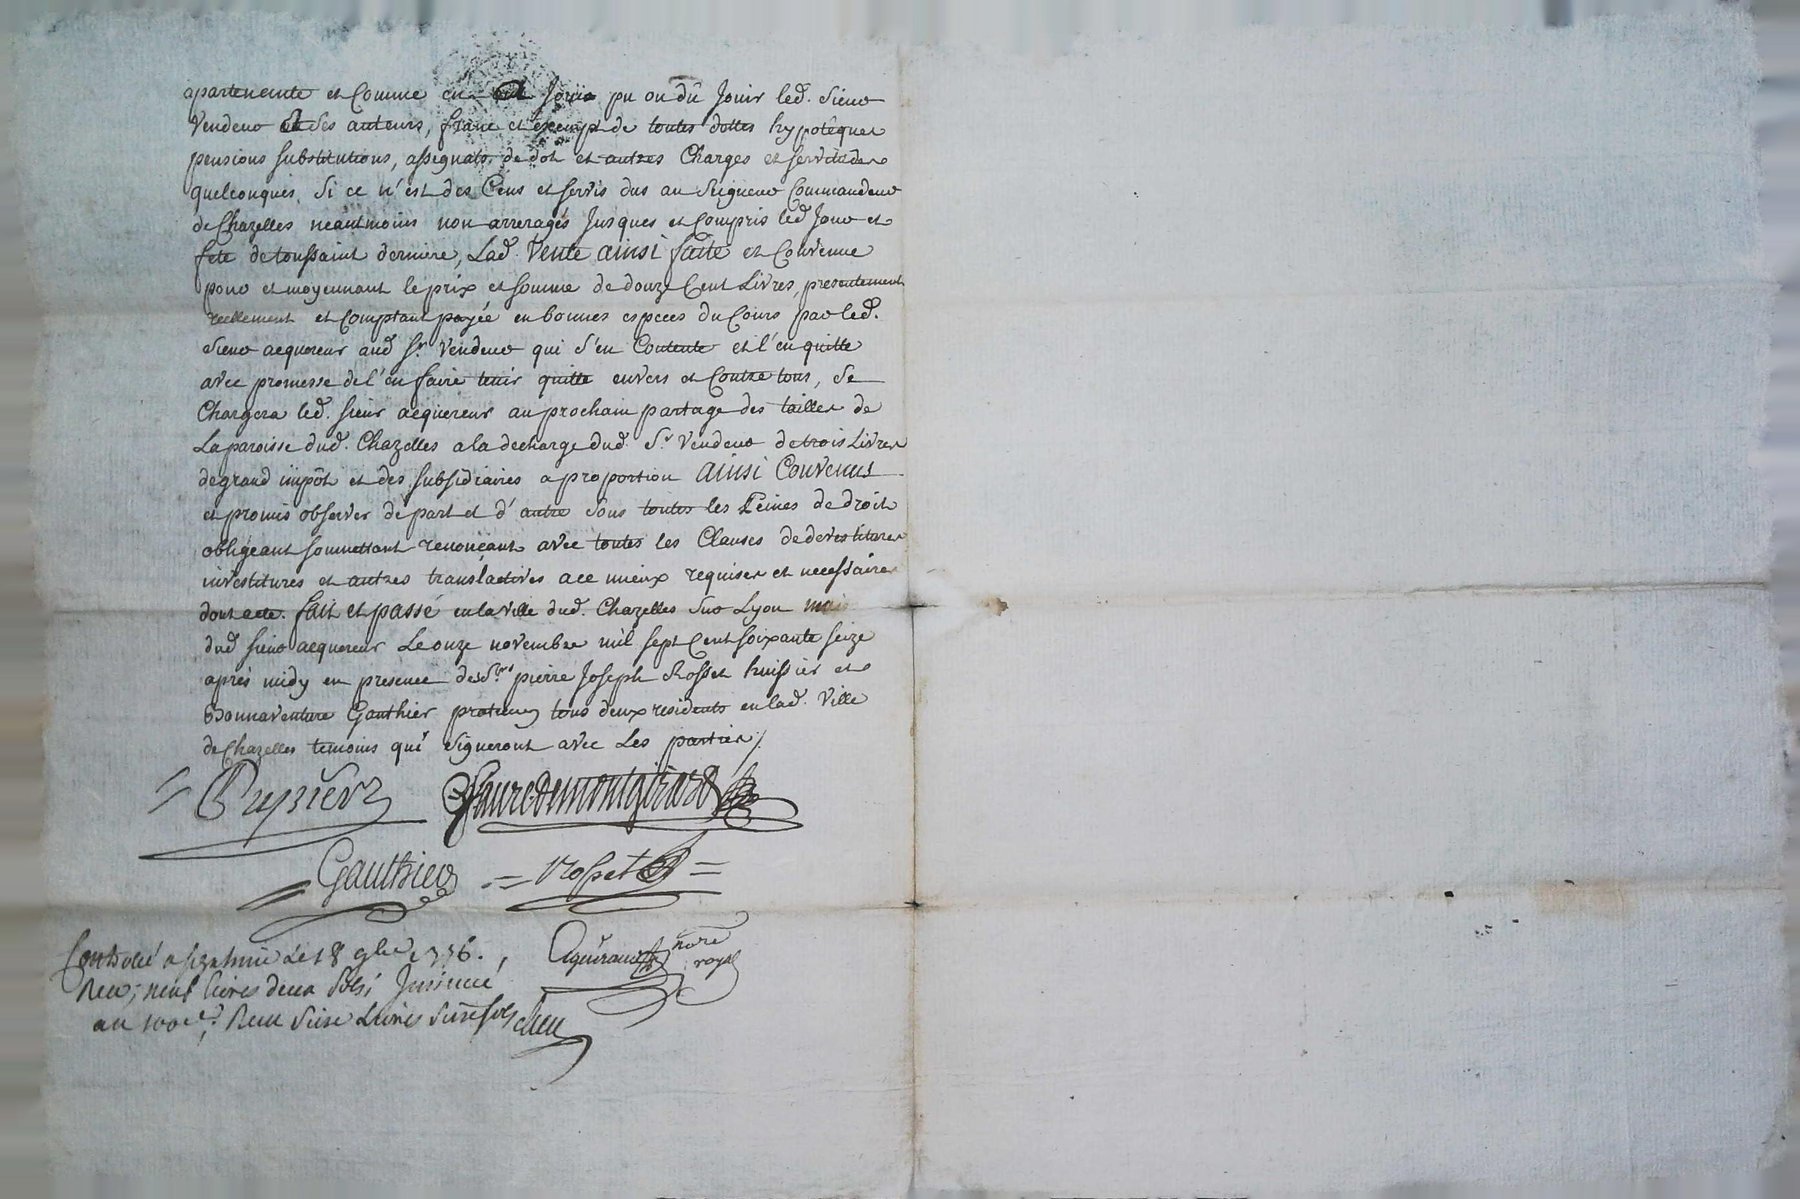 apartenente et Comme en ont Joui pu ou dû Jouir led. Sieur
Vendeur et Ses auteurs, franc et exempt de toutes dettes hypotêques
pensions substitutions, assegnats de dot et autres Charges et servitudes
quelconques, Si ce n'est des Cens et servis dus au Seigneur Commandeur
de Chazelles neantmoins non arreragés Jusques et Compris led. Jour et
fete de toussaint derniere, Lad. Vente ainsi faite et Convenue
pour et moyennant le prix et somme de douze Cent Livres, presentement
reellement et Comptant payée en bonnes especes du Cours par led.
Sieur acquereur aud. Sr. Vendeur qui S'en Contente et l'en quitte
avec promesse de l'en faire tenir quitte envers et Contre tous, Se
Chargera led. Sieur acquereur au prochain partage des tailles de
La paroisse dud. Chazelles a la decharge dud. Sr. Vendeur de trois Livres
de grand impôt et des subsidiaires a proportion ainsi Convenus
et promis observer de part et d'autre Sous toutes les Peines de droit
obligeant soumettant renonçant avec toutes les Clauses de devestitures
investitures et autres translatives a ce mieux requises et necessaires
dont acte. fait et passé en la ville dud. Chazelles Sur Lyon
dud. Sieur acquereur Le onze novembre mil sept Cent soixante seize
après midy en presence des Srs. pierre Joseph Rosset huissier et
Bonnaventure Gauthier praticien tous deux residents en lad. Ville
de Chazelles temoins qui Signeront avec Les parties /.
Pupier Faure de montgirard
Gauthier Rosset
Controlé a le 18 9bre 1776.
Reçu neuf livres deux Sols Insinué
au 100e. Reçu Seise Livres Seise sols
Eyquiraud nore
royal